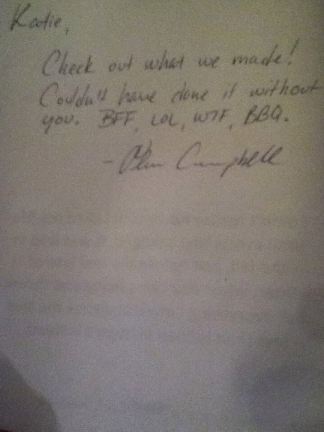 Katie,
Check out what we made!
Couldn't have done it without
you. BFF, LOL, WTF, BBQ.
- Campbell